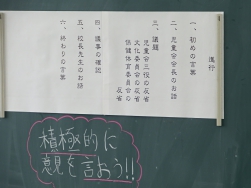 進行
一、初めの言葉
二、児童会会長のお話
三、議題
児童会三役の反省
文化委員会の反省
保健体育委員会の
反省
四、議事の確認
五、校長先生のお話
六、終わりの言葉
積極的に
意見を言おう!!